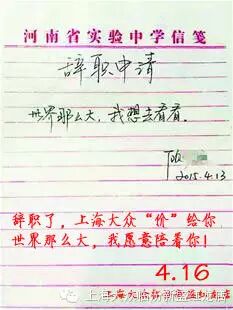 河南省实验中学信笺
辞职申请
世界那么大，我想去看看。
2015.4.13
辞职了，上海大众“价”给你
世界那么大，我愿意陪着你！
4.16